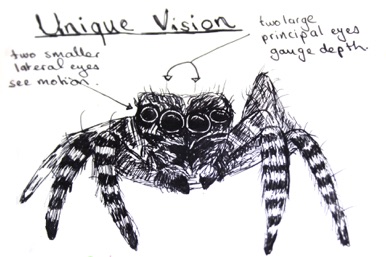 Unique Vision
two smaller
lateral eyes
see motion.
two large
principal eyes
gauge depth.